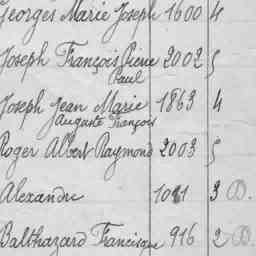 Georges Marie Joseph 1600 4
Joseph François Pierre 2002 5
Paul
Joseph Jean Marie 1863 4
Auguste François
Roger Albert Raymond 2003 5
Alexandre 1011 3 D.
Balthazard Francisque 916 2 D.